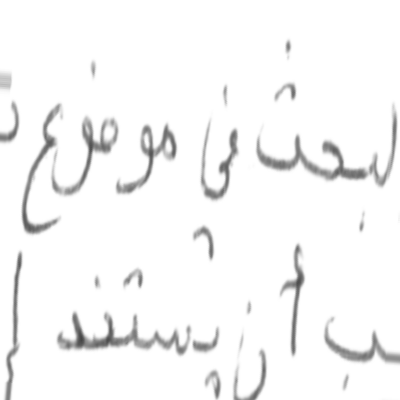 لبحث في موضوع
ـب أن يستند